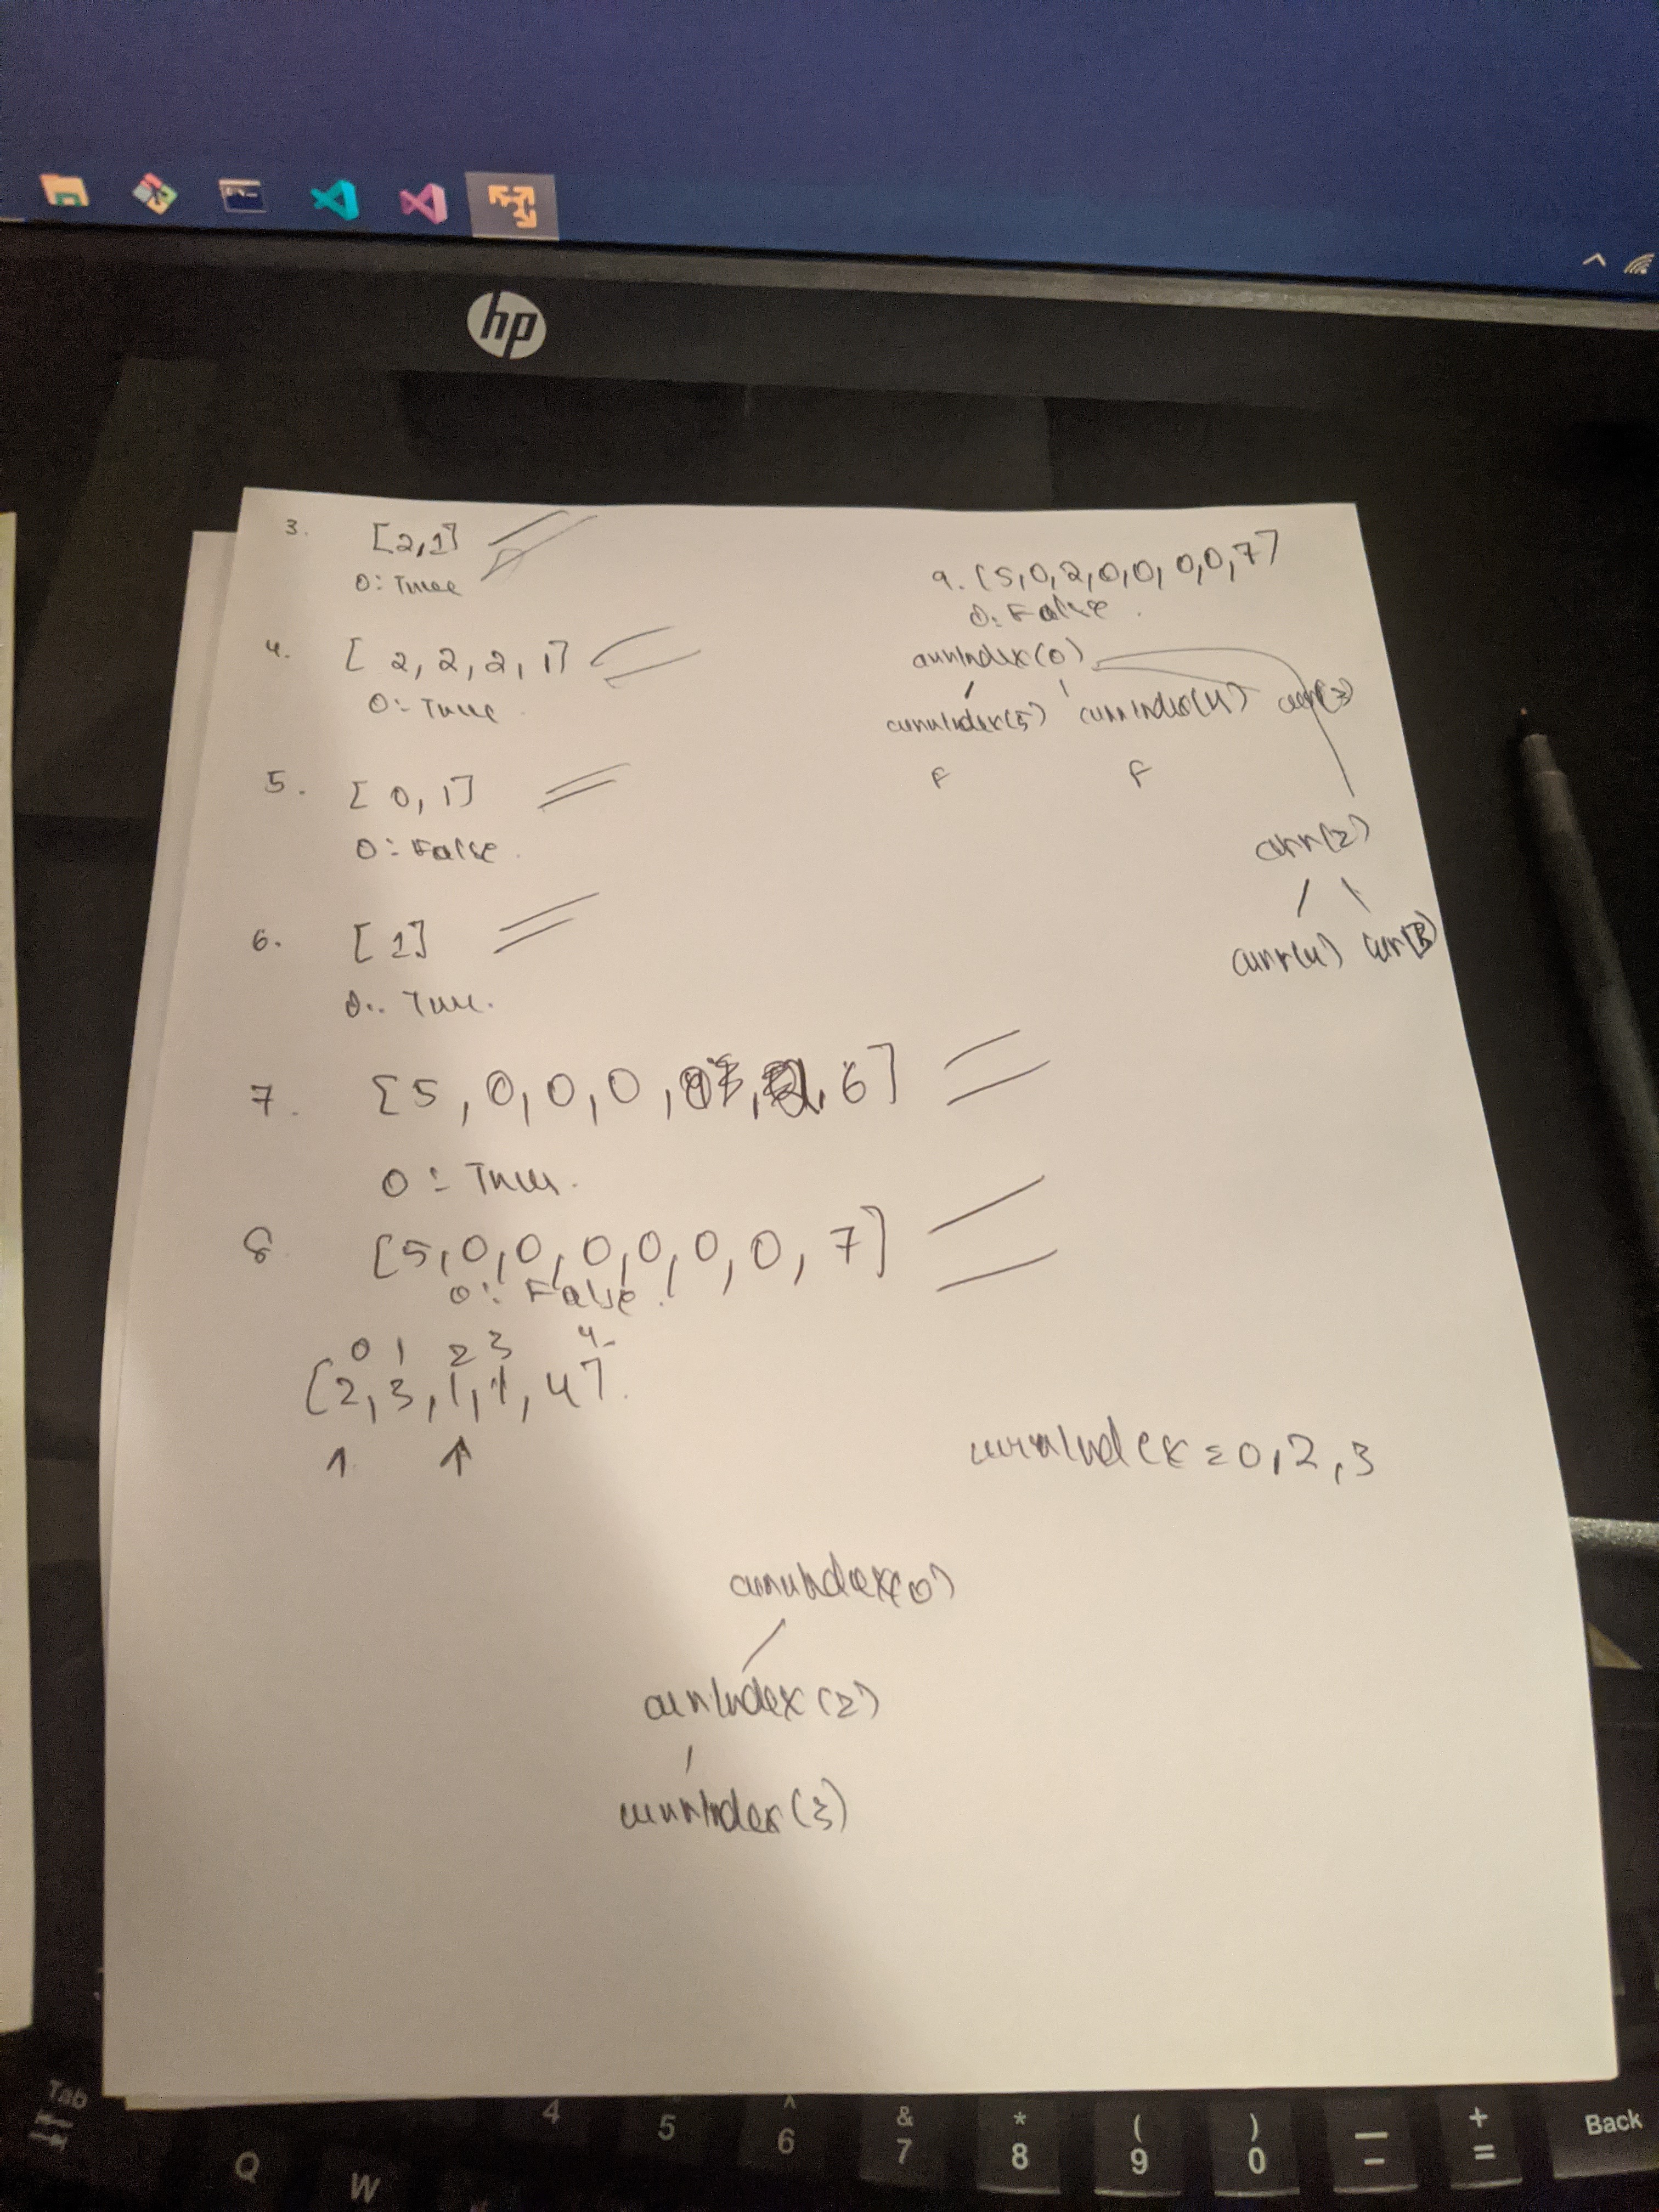 hp
3. [2,1]
O: True
4. [2, 2, 2, 1]
O: True
5. [0, 1]
O: False.
6. [1]
O: True.
7. [5, 0, 0, 0, , , 6]
O: True.
8. [5,0,0,0,0,0,0,7]
O: False.
0 1 2 3 4
[2,3,1,1,4].
9. [5,0,2,0,0,0,0,7]
O: False.
currIndex(0)
currIndex(5) currIndex(4) curr(3)
F F
curr(2)
curr(4) curr(3)
currIndex = 0,2,3
currIndex(0)
currIndex(2)
currIndex(3)
Tab
4 5 ^ 6 & 7 * 8 ( 9 ) 0 — - + = Back
Q W